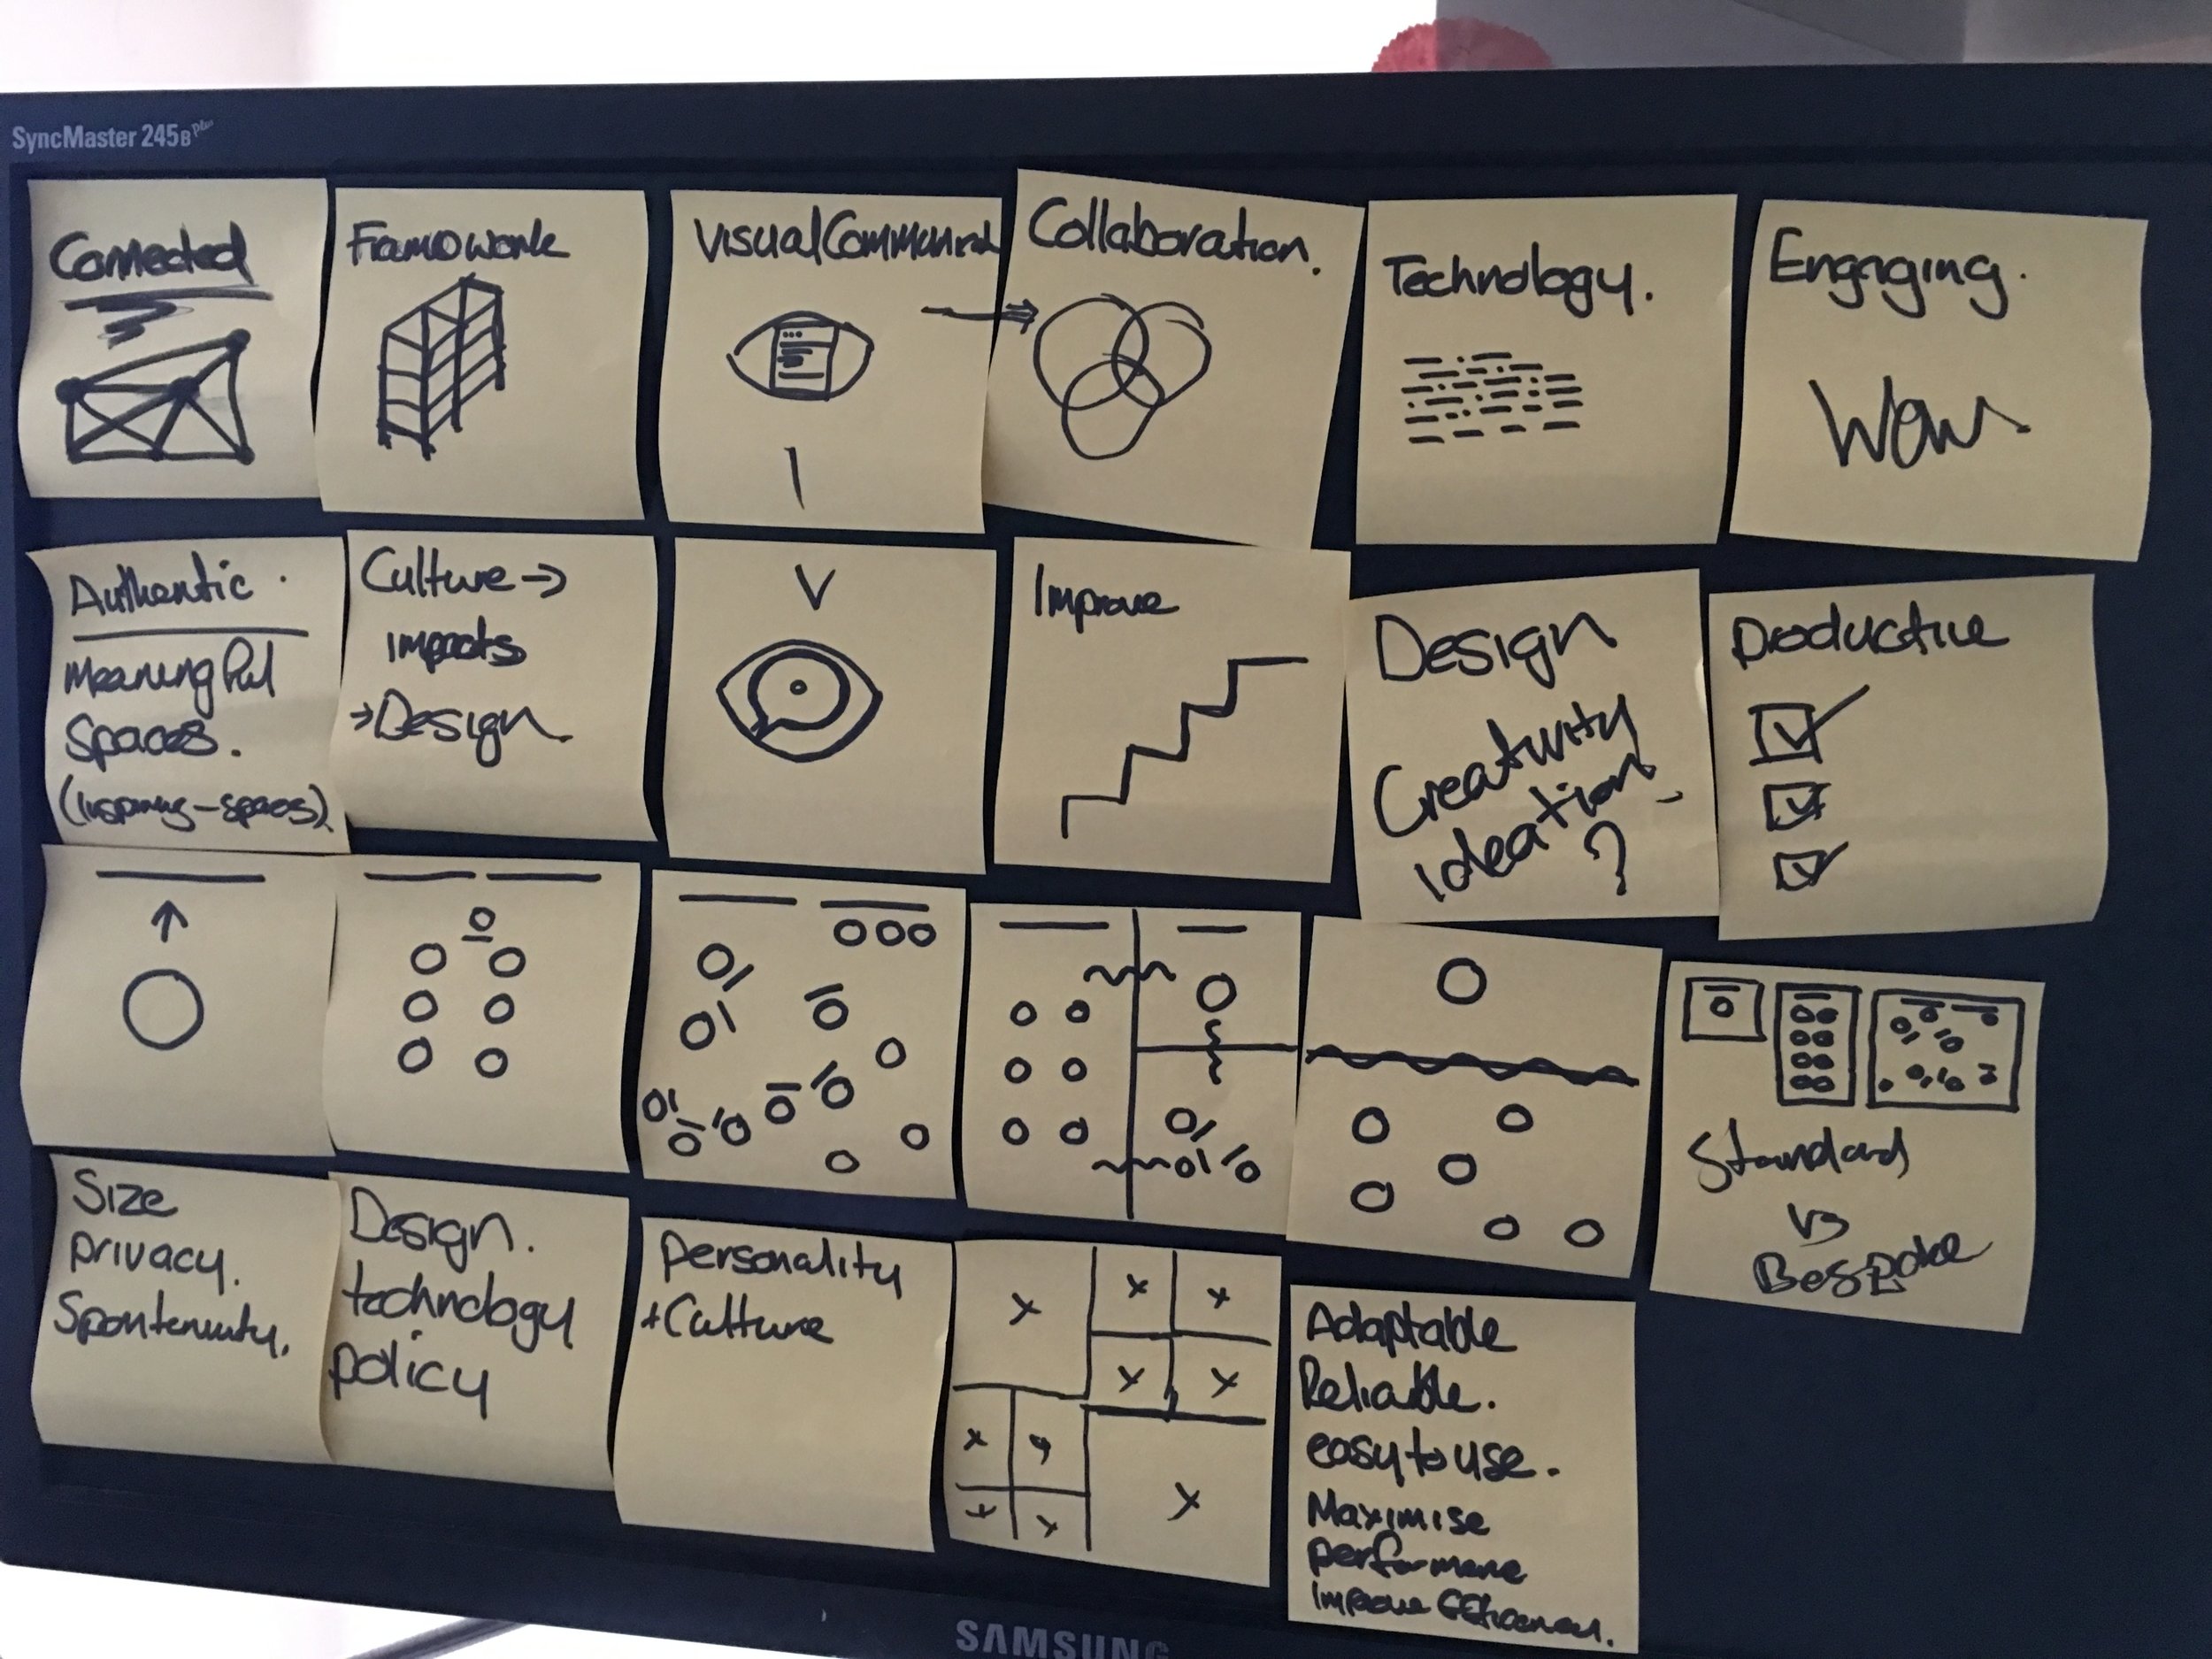 SyncMaster 245B plus
Connected
Framework
Visual
Collaboration.
Technology.
Engaging.
Wow
Authentic.
Meaningful
Spaces.
(Inspiring-spaces)
Culture →
impacts
→ Design
V
Improve
Design
Creativity
ideation
?
Productive
Standard
vs
Bespoke
Size
privacy.
Design.
technology
policy
Personality
+ Culture
x
x
x
x
x
x
x
x
x
Adaptable
Reliable.
easy to use.
Maximise
performance
Improve Efficiency.
SAMSUNG